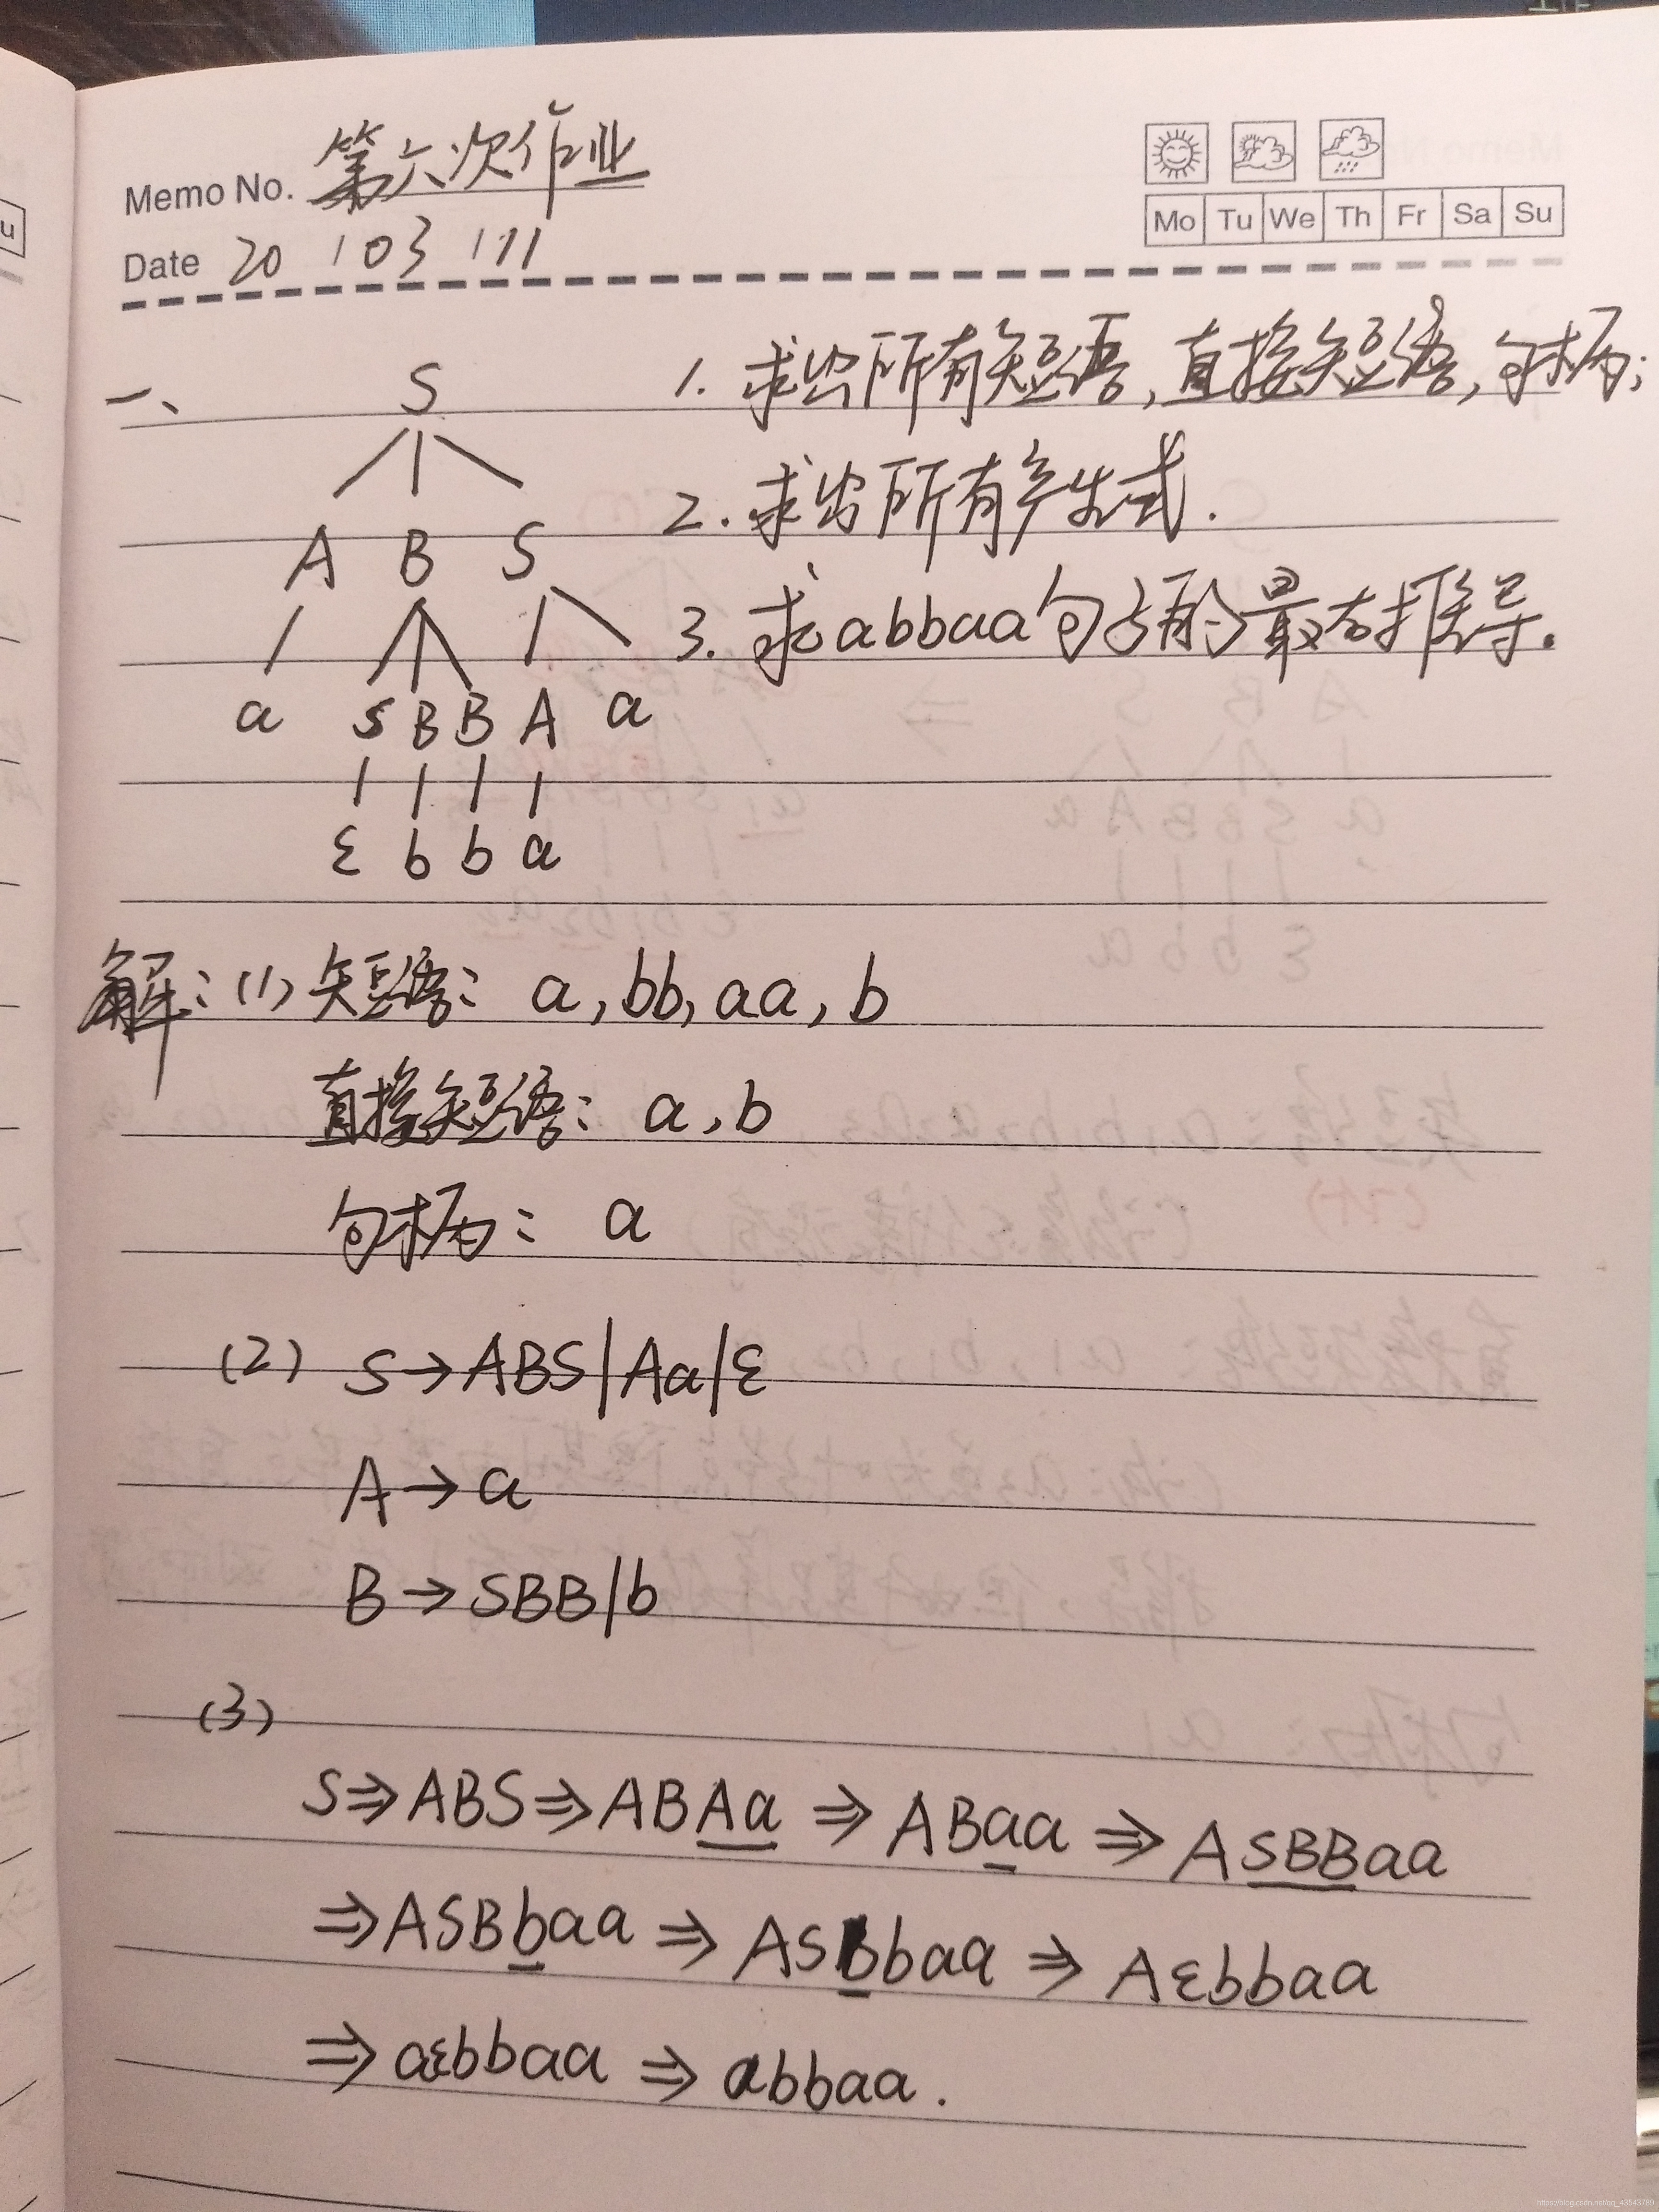 Memo No. 第六次作业
Mo Tu We Th Fr Sa Su
Date 20 / 03 / 11
一、 S
1. 求出所有短语,直接短语,句柄;
A B S
2. 求出所有产生式.
a S B B A a
3. 求abbaa句子的最右推导.
ε b b a
解:(1) 短语: a, bb, aa, b
直接短语: a, b
句柄: a
(2) S→ABS|Aa|ε
A→a
B→SBB|b
(3)
S⇒ABS⇒ABAa⇒ABaa⇒ASBBaa
⇒ASBbaa⇒ASbbaa⇒Aεbbaa
⇒aεbbaa⇒abbaa.
https://blog.csdn.net/qq_43543789